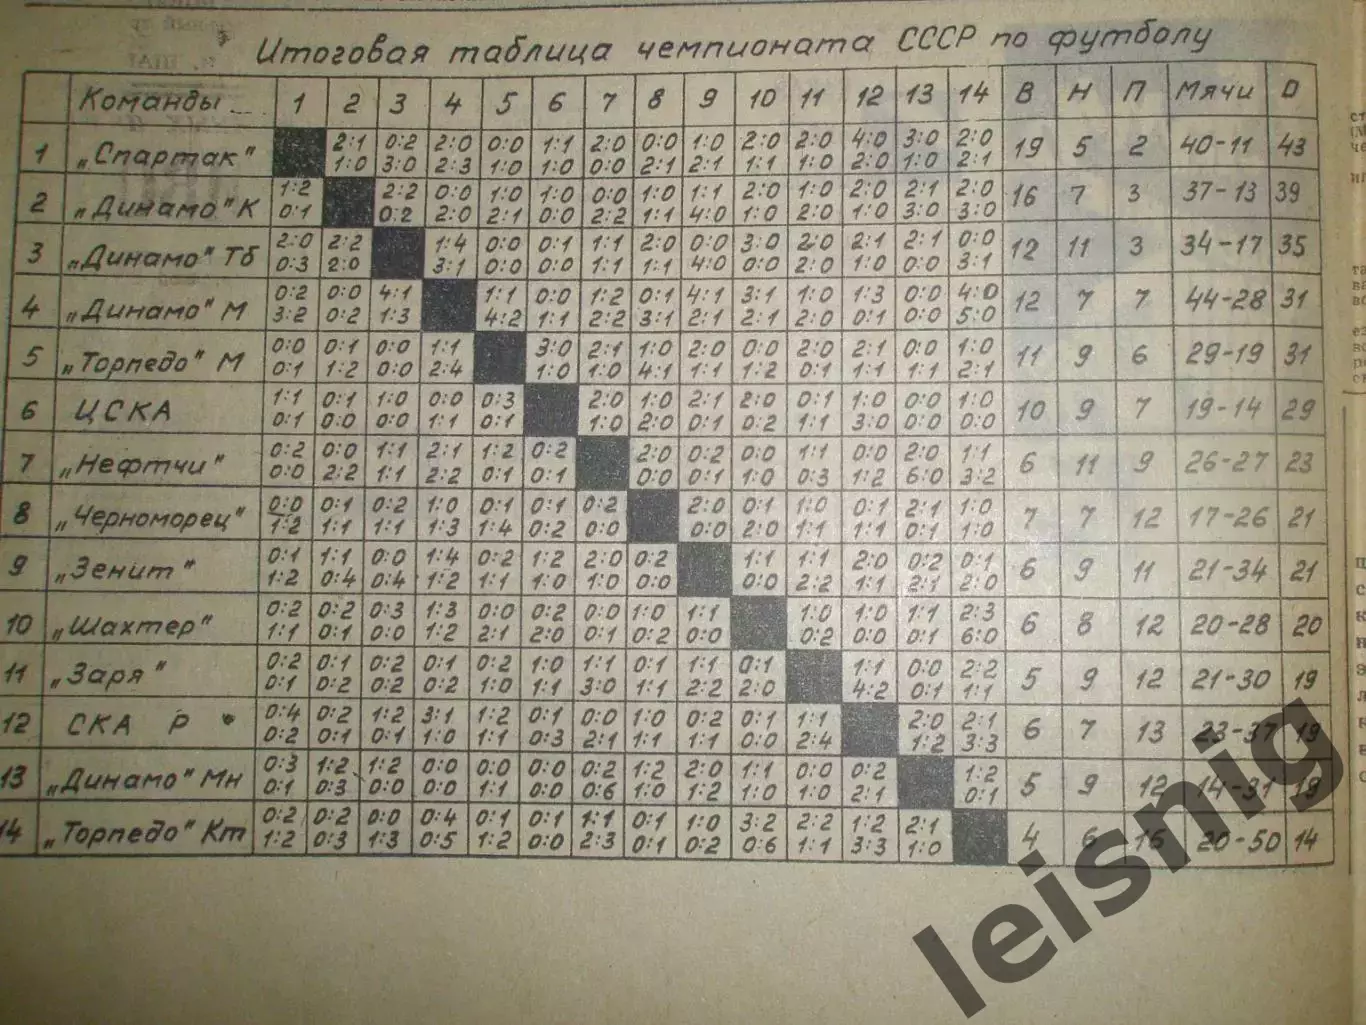 Итоговая таблица чемпионата СССР по футболу
Команды 1 2 3 4 5 6 7 8 9 10 11 12 13 14 В Н П Мячи О
1 „Спартак" 2:1 0:2 2:0 0:0 1:1 2:0 0:0 1:0 2:0 2:0 4:0 3:0 2:0 19 5 2 40-11 43
1:0 3:0 2:3 1:0 1:0 0:0 2:1 2:1 1:1 1:0 2:0 1:0 2:1
2 „Динамо" К 1:2 2:2 0:0 1:0 1:0 0:0 1:0 1:1 2:0 1:0 2:0 2:1 2:0 16 7 3 37-13 39
0:1 0:2 2:0 2:1 0:0 2:2 1:1 4:0 1:0 2:0 1:0 3:0 3:0
3 „Динамо" Тб 2:0 2:2 1:4 0:0 0:1 1:1 2:0 0:0 3:0 2:0 2:1 2:1 0:0 12 11 3 34-17 35
0:3 2:0 3:1 0:0 0:0 1:1 1:1 4:0 0:0 2:0 1:0 0:0 3:1
4 „Динамо" М 0:2 0:0 4:1 1:1 0:0 1:2 0:1 4:1 3:1 1:0 1:3 0:0 4:0 12 7 7 44-28 31
3:2 0:2 1:3 4:2 1:1 2:2 3:1 2:1 2:1 2:0 0:1 0:0 5:0
5 „Торпедо" М 0:0 0:1 0:0 1:1 3:0 2:1 1:0 2:0 0:0 2:0 2:1 0:0 1:0 11 9 6 29-19 31
0:1 1:2 0:0 2:4 1:0 1:0 4:1 1:1 1:2 0:1 1:1 1:1 2:1
6 ЦСКА 1:1 0:1 1:0 0:0 0:3 2:0 1:0 2:1 2:0 0:1 1:0 0:0 1:0 10 9 7 19-14 29
0:1 0:0 0:0 1:1 0:1 1:0 2:0 0:1 0:2 1:1 3:0 0:0 0:0
7 „Нефтчи" 0:2 0:0 1:1 2:1 1:2 0:2 2:0 0:2 0:0 1:1 0:0 2:0 1:1 6 11 9 26-27 23
0:0 2:2 1:1 2:2 0:1 0:1 0:0 0:1 1:0 0:3 1:2 6:0 3:2
8 „Черноморец" 0:0 0:1 0:2 1:0 0:1 0:1 0:2 2:0 0:1 1:0 0:1 2:1 1:0 7 7 12 17-26 21
1:2 1:1 1:1 1:3 1:4 0:2 0:0 0:0 2:0 1:1 1:1 0:1 1:0
9 „Зенит" 0:1 1:1 0:0 1:4 0:2 1:2 2:0 0:2 1:1 1:1 2:0 0:2 0:1 6 9 11 21-34 21
1:2 0:4 0:4 1:2 1:1 1:0 1:0 0:0 0:0 2:2 1:1 2:1 2:0
10 „Шахтер" 0:2 0:2 0:3 1:3 0:0 0:2 0:0 1:0 1:1 1:0 1:0 1:1 2:3 6 8 12 20-28 20
1:1 0:1 0:0 1:2 2:1 2:0 0:1 0:2 0:0 0:2 0:0 0:1 6:0
11 „Заря" 0:2 0:1 0:2 0:1 0:2 1:0 1:1 0:1 1:1 0:1 1:1 0:0 2:2 5 9 12 21-30 19
0:1 0:2 0:2 0:2 1:0 1:1 3:0 1:1 2:2 2:0 4:2 0:1 1:1
12 СКА Р 0:4 0:2 1:2 3:1 1:2 0:1 0:0 1:0 0:2 0:1 1:1 2:0 2:1 6 7 13 23-37 19
0:2 0:1 0:1 1:0 1:1 0:3 2:1 1:1 1:1 0:0 2:4 1:2 3:3
13 „Динамо" Мн 0:3 1:2 1:2 0:0 0:0 0:0 0:2 1:2 2:0 1:1 0:0 0:2 1:2 5 9 12 14-31 19
0:1 0:3 0:0 0:0 1:1 0:0 0:6 1:0 1:2 1:0 1:0 2:1 0:1
14 „Торпедо" Кт 0:2 0:2 0:0 0:4 0:1 0:1 1:1 0:1 1:0 3:2 2:2 1:2 2:1 4 6 16 20-50 14
1:2 0:3 1:3 0:5 1:2 0:0 2:3 0:1 0:2 0:6 1:1 3:3 1:0
leisnig